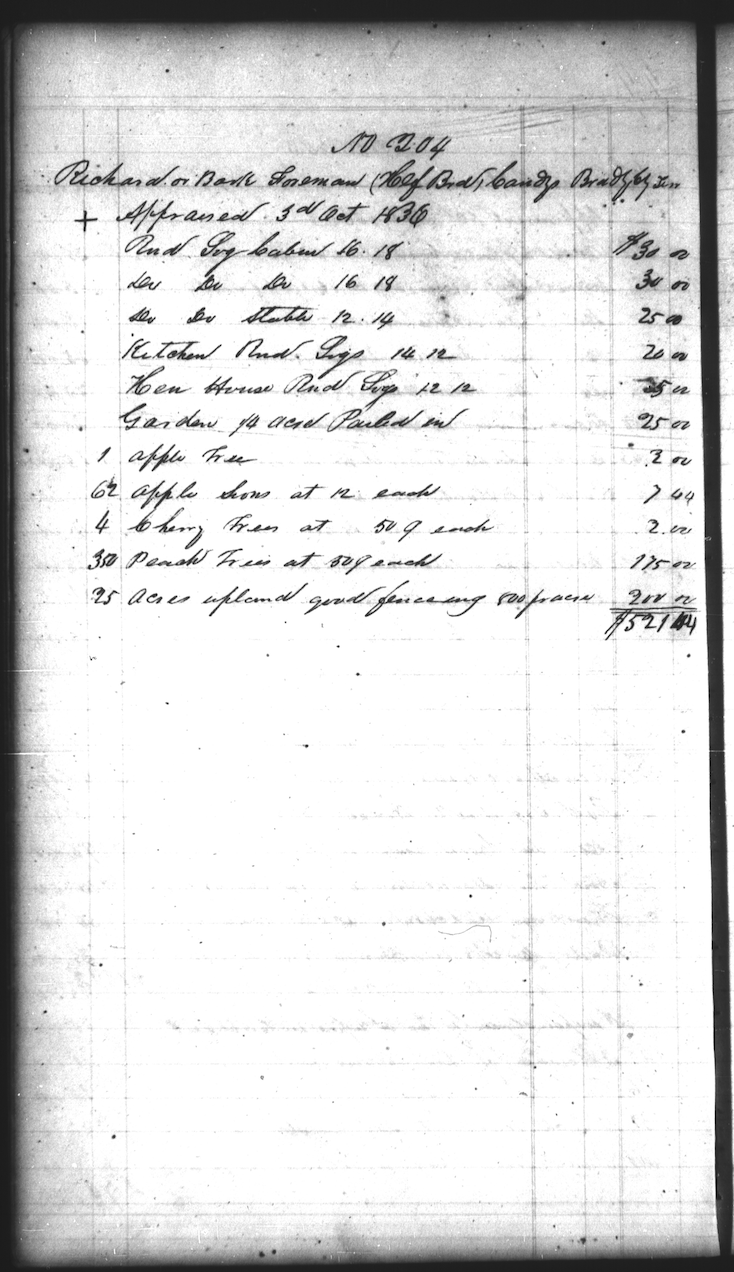 No 204
Richard or Bark Foreman (Hlf Brd) Candys Bradly Cty Ten
+ Appraised 3d Oct 1836
Rnd Log Cabin 16. 18 $30 00
Do Do Do 16 18 30 00
Do Do Stable 12. 14 25 00
Kitchen Rnd. Logs 14 12 20 00
Hen House Rnd Logs 12 12 5 00
Garden 1/4 acre Pailed in 25 00
1 apple Tree 2 00
62 apple Sions at 12 each 7 44
4 Cherry Trees at 50 ¢ each 2.00
350 Peach Trees at 50¢ each 175 00
25 Acres upland good fenceing 800 p acre 200 00
$521 44